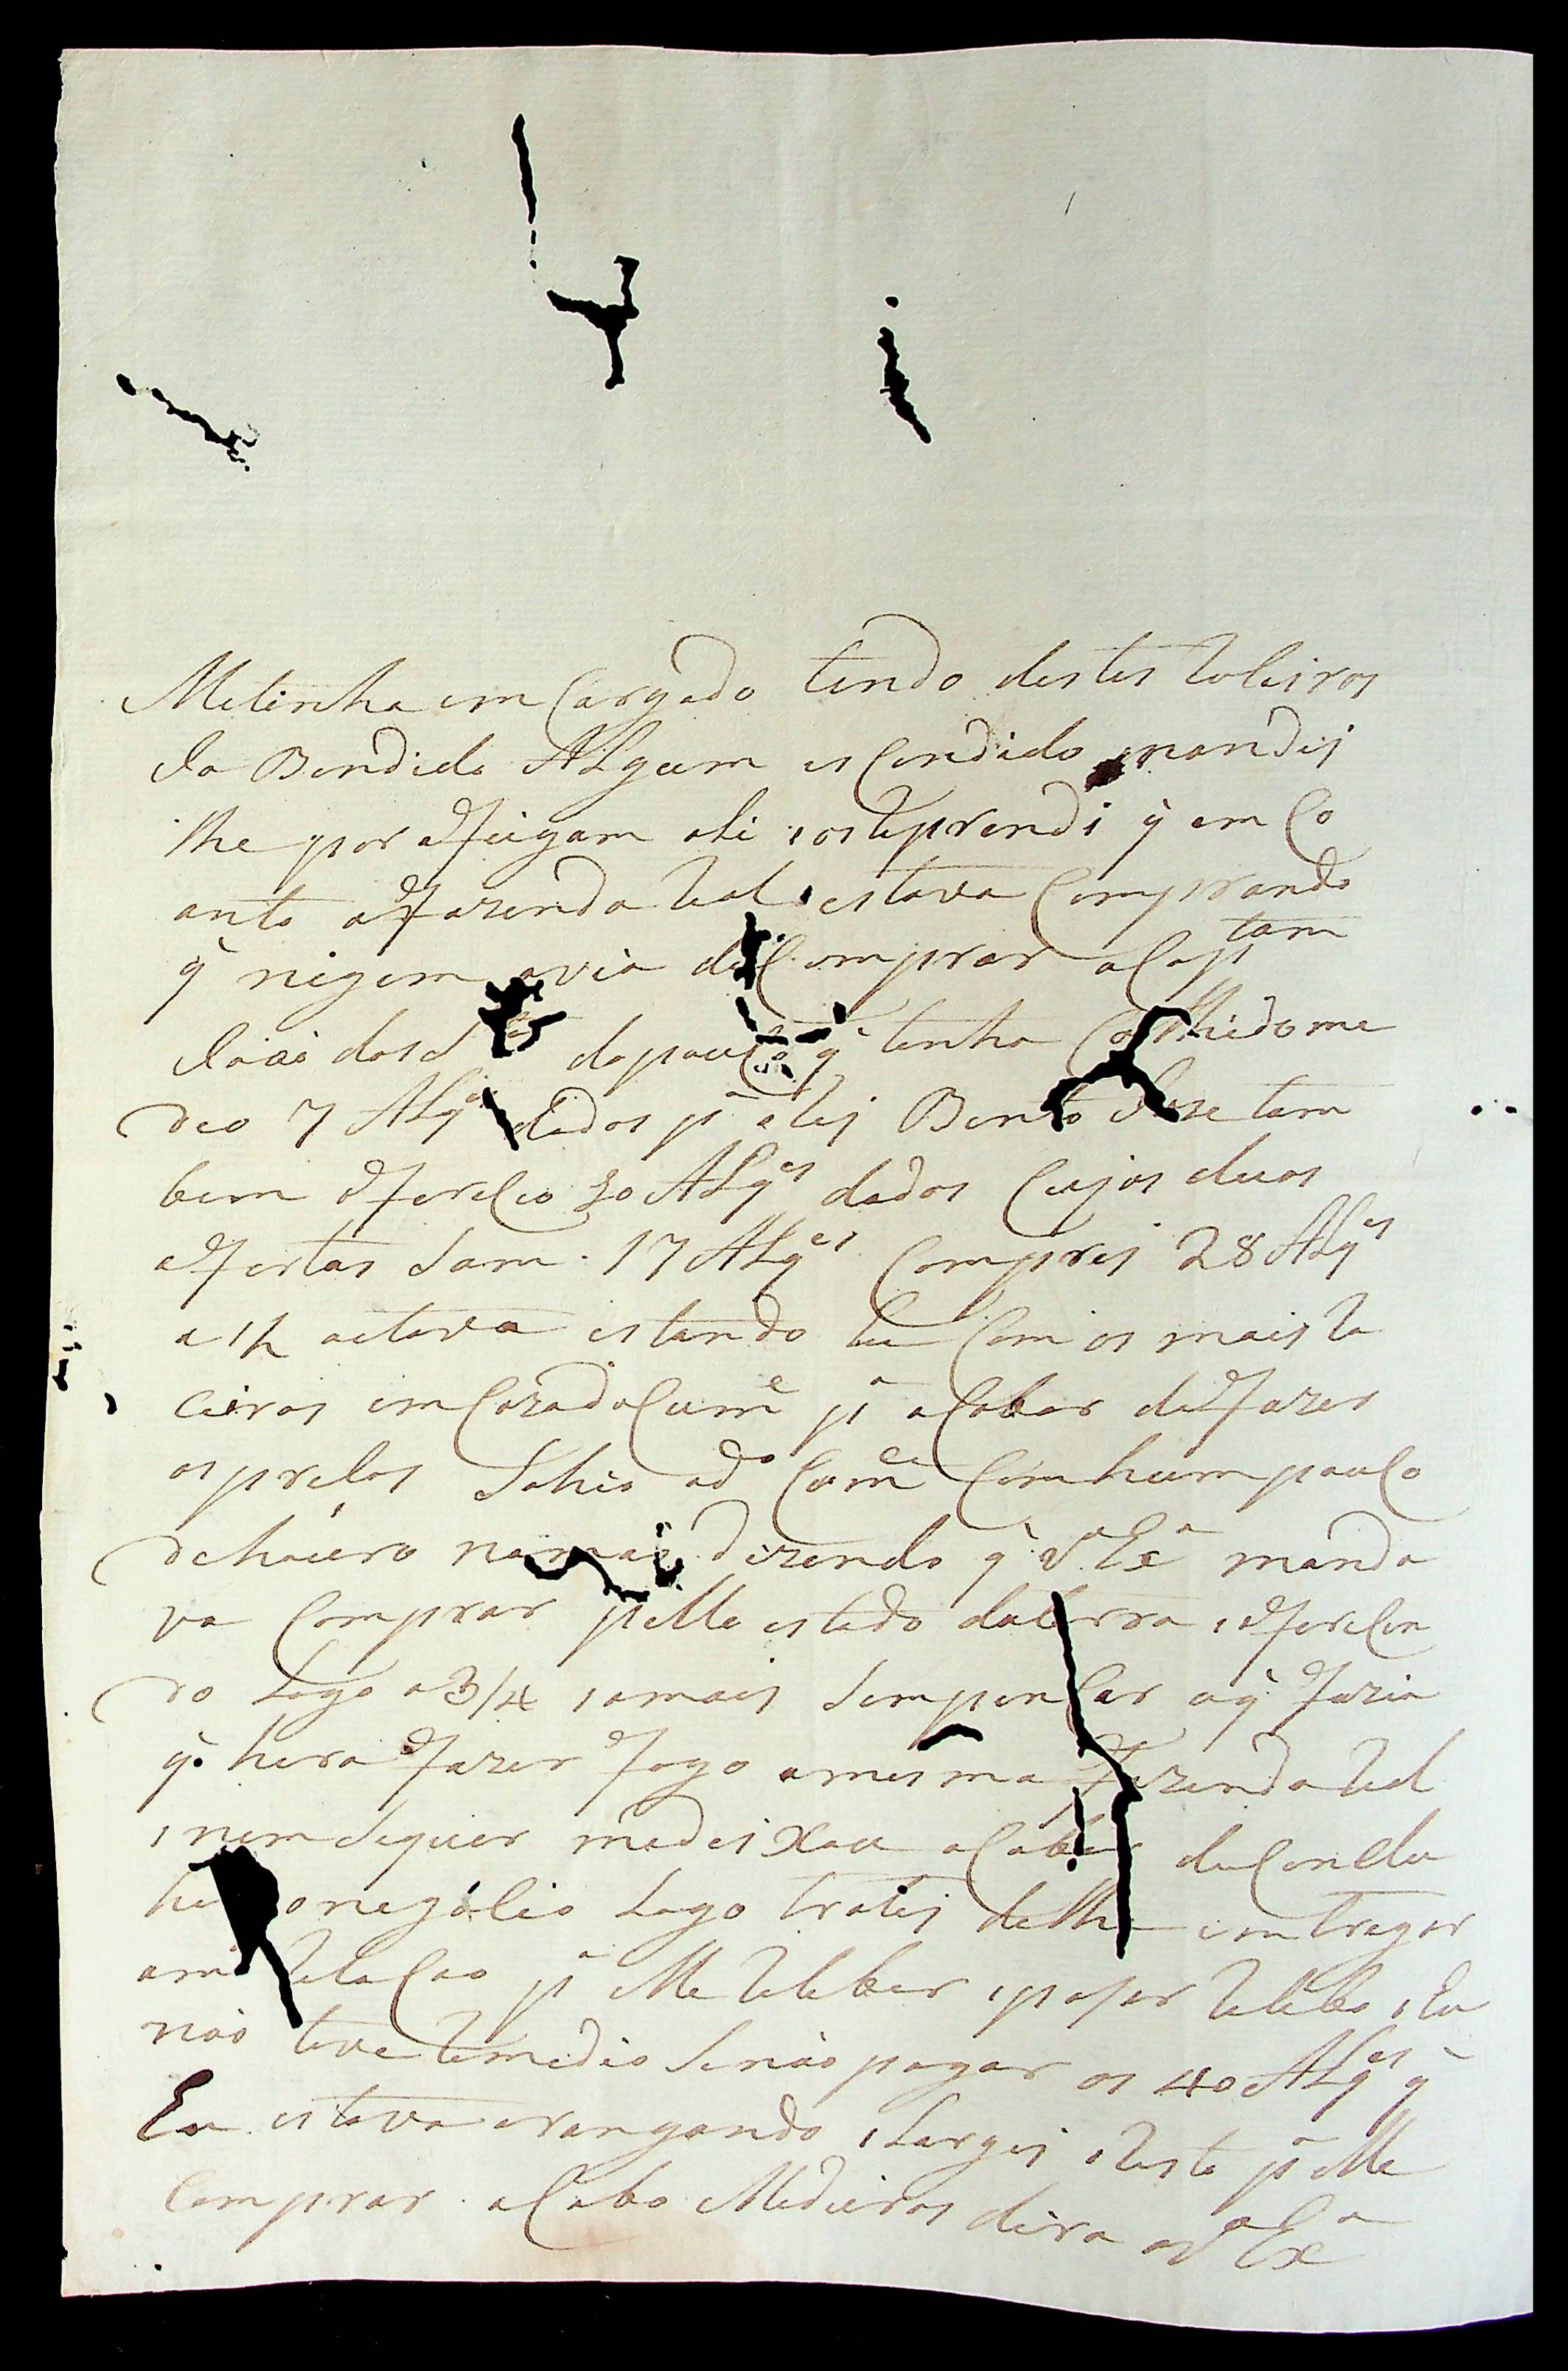 Metinha em Cargado tendo destes Roseiros
ja Bendido ALgum esCondido mandej
lhe por e Jugam ali, os Reprendi q̃ em Co
anto a Fazenda Real estava Comprando
q̃ nigem avia de Comprar a Capitam
Joaõ dos S dapouco q̃ tenha Colhido me
deo 7 ALqes dados pa elRej Bento Jose tam
bem ofereCeo 10 ALqes dados Cujos duas
ofertas Sam 17 ALqes Comprej 28 ALqes
a 1/2 oitava estando eu Com os mais Ro
Ceiros em Cazado Cume pa aCabar de Fazer
os preCos Sahio o do Cume Com hum pouCo
de houro namaõ dizendo q̃ VExa manda
va Comprar pello estado daterra, ofereCen
do Logo a 3/4, amais Sem pensar oq̃ Fazia
q̃ hera Fazer Fogo amesma Fazenda Real
, nem Siquer me deixou aCabar de Conclu
hir onegoCio Logo tratej de lhe emtregar
ami RelaCaõ pa elle ReCeber, pasar ReCibo, Eu
naõ tive Remedio Senaõ pagar os 40 ALqes q̃
Eu estava aranjando, Largei, Resto pa elle
Comprar o Cabo Medeiros dira a VExa